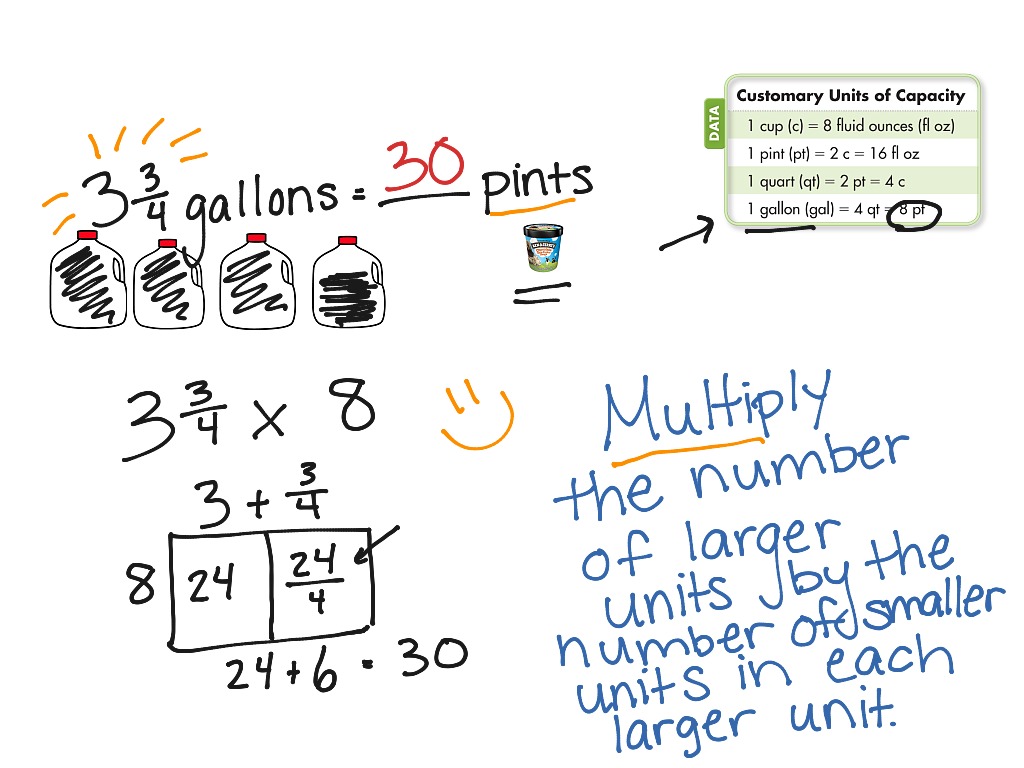 Customary Units of Capacity
DATA
1 cup (c) = 8 fluid ounces (fl oz)
1 pint (pt) = 2 c = 16 fl oz
1 quart (qt) = 2 pt = 4 c
1 gallon (gal) = 4 qt = 8 pt
3 3/4 gallons = 30 pints
3 3/4 x 8
3 + 3/4
8 24 24/4
24 + 6 = 30
Multiply
the number
of larger
units by the
number of smaller
units in each
larger unit.